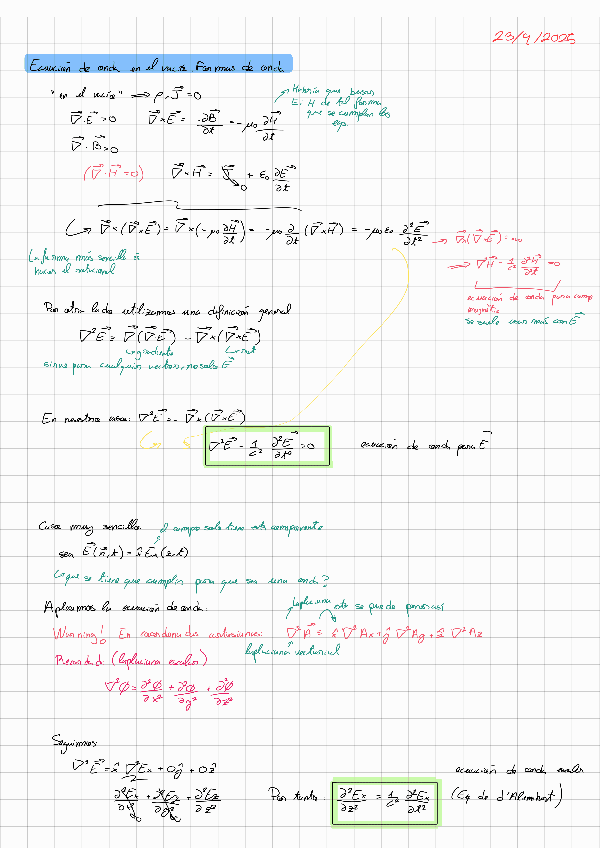 23/9/2025
Ecuación de onda en el vacío. Formas de onda
"en el vacío" ⟹ ρ, J⃗ = 0
∇⃗·E⃗ = 0   ∇⃗×E⃗ = -∂B⃗/∂t = -μ₀ ∂H⃗/∂t
→ Habría que buscar
E⃗, H⃗ de tal forma
que se cumplan las
∇⃗·B⃗ = 0
(∇⃗·H⃗ = 0)   ∇⃗×H⃗ = J⃗ + ε₀ ∂E⃗/∂t
0
↳ ∇⃗×(∇⃗×E⃗) = ∇⃗×(-μ₀ ∂H⃗/∂t) = -μ₀ ∂/∂t (∇⃗×H⃗) = -μ₀ε₀ ∂²E⃗/∂t²
La forma más sencilla es
hacer el rotacional
⟹ ∇²H⃗ - 1/c² ∂²H⃗/∂t² = 0
ecuación de onda para campo
magnético
se suele usar más con E⃗
Por otro lado utilizamos una definición general
∇²E⃗ = ∇⃗(∇⃗·E⃗) - ∇⃗×(∇⃗×E⃗)
↳ gradiente   ↳ rot
sirve para cualquier vector, no solo E⃗
En nuestro caso: ∇²E⃗ = -∇⃗×(∇⃗×E⃗)
∇²E⃗ - 1/c² ∂²E⃗/∂t² = 0   ecuación de onda para E⃗
Caso muy sencillo   El campo solo tiene esta componente
sea E⃗(r⃗,t) = x̂ Eₓ(z,t)
¿Qué se tiene que cumplir para que sea una onda?
Aplicamos la ecuación de onda:
Laplaciana solo se puede poner así
Warning! En coordenadas cartesianas: ∇²A⃗ = x̂ ∇²Ax + ŷ ∇²Ay + ẑ ∇²Az
laplaciana vectorial
Recordad: (laplaciana escalar)
∇²Φ = ∂²Φ/∂x² + ∂²Φ/∂y² + ∂²Φ/∂z²
Seguimos:
∇²E⃗ = x̂ ∇²Eₓ + 0ŷ + 0ẑ
ecuación de onda escalar
∂²Eₓ/∂x² + ∂²Eₓ/∂y² + ∂²Eₓ/∂z²   Por tanto: ∂²Eₓ/∂z² = 1/c² ∂²Eₓ/∂t²   (Eq de d'Alembert)
0   0